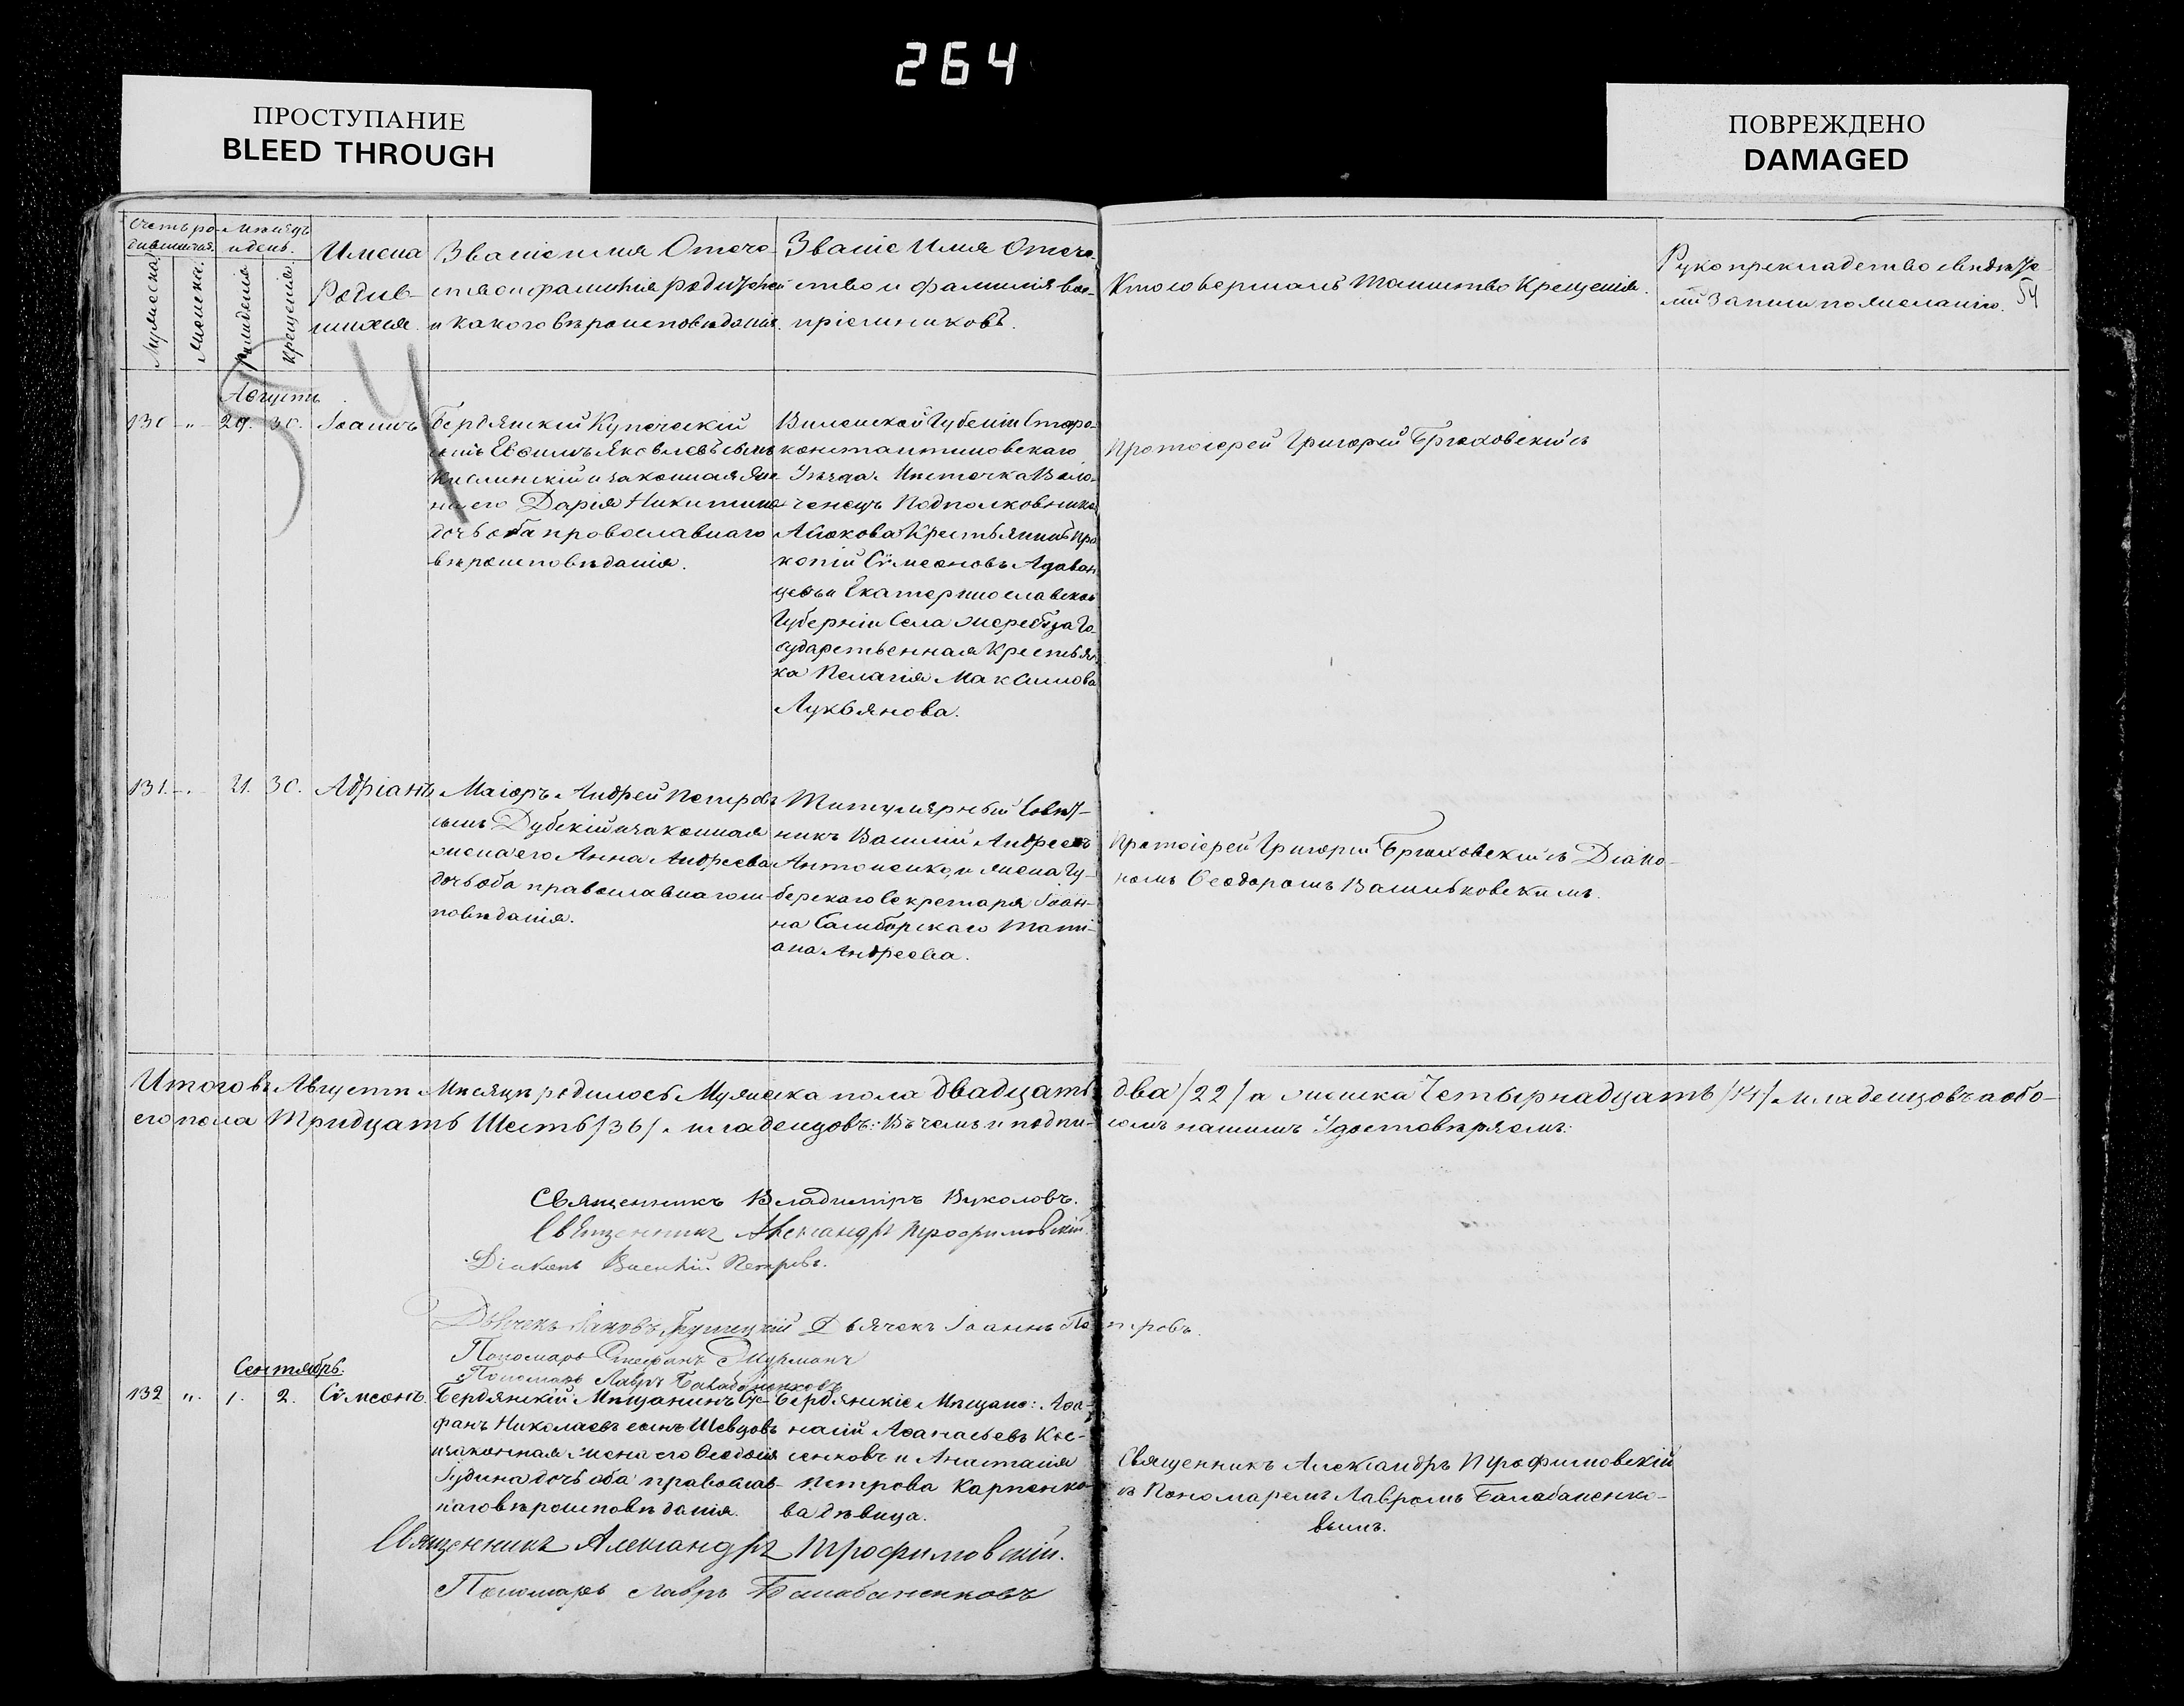 264
ПРОСТУПАНИЕ
BLEED THROUGH
ПОВРЕЖДЕНО
DAMAGED
Счетъ ро-
дившихся.
Мѣсяцъ
и день.
Мужеска.
Женска.
рожденія
крещенія
Имена
Родив-
шихся.
Званіе имя Отече-
ство и фамилія родителей
и какого вѣроисповѣданія.
Званіе Имя Отече-
ство и фамилія вос-
пріемниковъ.
Кто совершалъ Таинство Крещенія.
Рукоприкладство свидѣте-
лей записи по желанію.
54
Августъ
130 " 29. 30. Іоаннъ
Бердянскій Купеческій
сынъ Яковлевъ сынъ
и законная же-
на его Дарія Никитина
дочь оба провославнаго
вѣроисповѣданія.
Виленской Губеніи Старо-
константиновскаго
Уѣзда Мѣстечка
Подполковника
Крестьянинъ Про
копій Сѵмеоновъ
Екатеринославской
Губерніи Села Жеребца Го-
сударственная Крестьян-
ка Пелагія Максимова
Лукьянова.
Протоіерей Григорій съ
131. " 21. 30. Адріанъ
Маіоръ Андрей Петровъ
сынъ Дубскій и законная
жена его Анна Андреева
дочь оба православнаго ис-
повѣданія.
Титулярный Совѣт-
никъ Василій Андреевъ
Антоненко, и жена Гу-
берскаго Секретаря Іоан-
на Самборскаго Тати-
ана Андреева.
Протоіерей Григорій съ Діако-
номъ Ѳеодоромъ
Итого въ Августѣ Мѣсяцѣ родилось Мужеска пола двадцать два /22/ а женска Четырнадцать /14/ младенцовъ а обо-
его пола Тридцать Шесть /36/ младенцовъ: Въ чемъ и подпи- сомъ нашимъ Удостовѣряемъ:
Священникъ Владиміръ Вуколовъ.
Священникъ Александръ Трофимовскій
Діаконъ Василій Петровъ.
Дьячекъ Яковъ Дьячекъ Іоаннъ Петровъ.
Пономарь Стефанъ
Пономарь Лавръ Балабаненковъ
Сентябрь.
132 " 1. 2. Сѵмеонъ.
Бердянскій Мѣщанинъ Сте-
фанъ Николаевъ сынъ Шевцовъ
и законная жена его Ѳеодосія
дочь оба православ-
наго вѣроисповѣданія.
Бердянскіе Мѣщане: Аѳа-
насій Аѳанасьевъ Кос-
сенковъ и Анастасія
Петрова Карпенко-
ва дѣвица.
Священникъ Александръ Трофимовскій
съ Пономаремъ Лавромъ Балабаненко-
вымъ.
Священникъ Александръ Трофимовскій.
Пономарь Лавръ Балабаненковъ